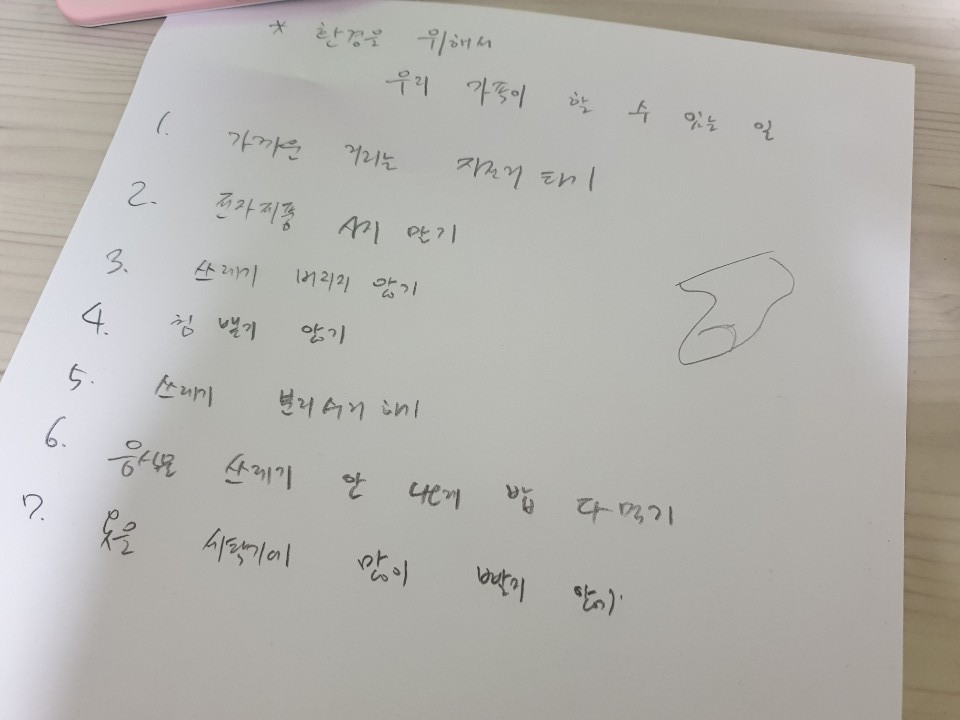 * 환경을 위해서
우리 가족이 할 수 있는 일
1. 가까운 거리는 자전거 타기
2. 전자제품 사지 말기
3. 쓰레기 버리지 않기
4. 침 뱉기 않기
5. 쓰레기 분리수거 하기
6. 음식물 쓰레기 안 나오게 밥 다 먹기
7. 옷을 세탁기에 많이 빨지 않기